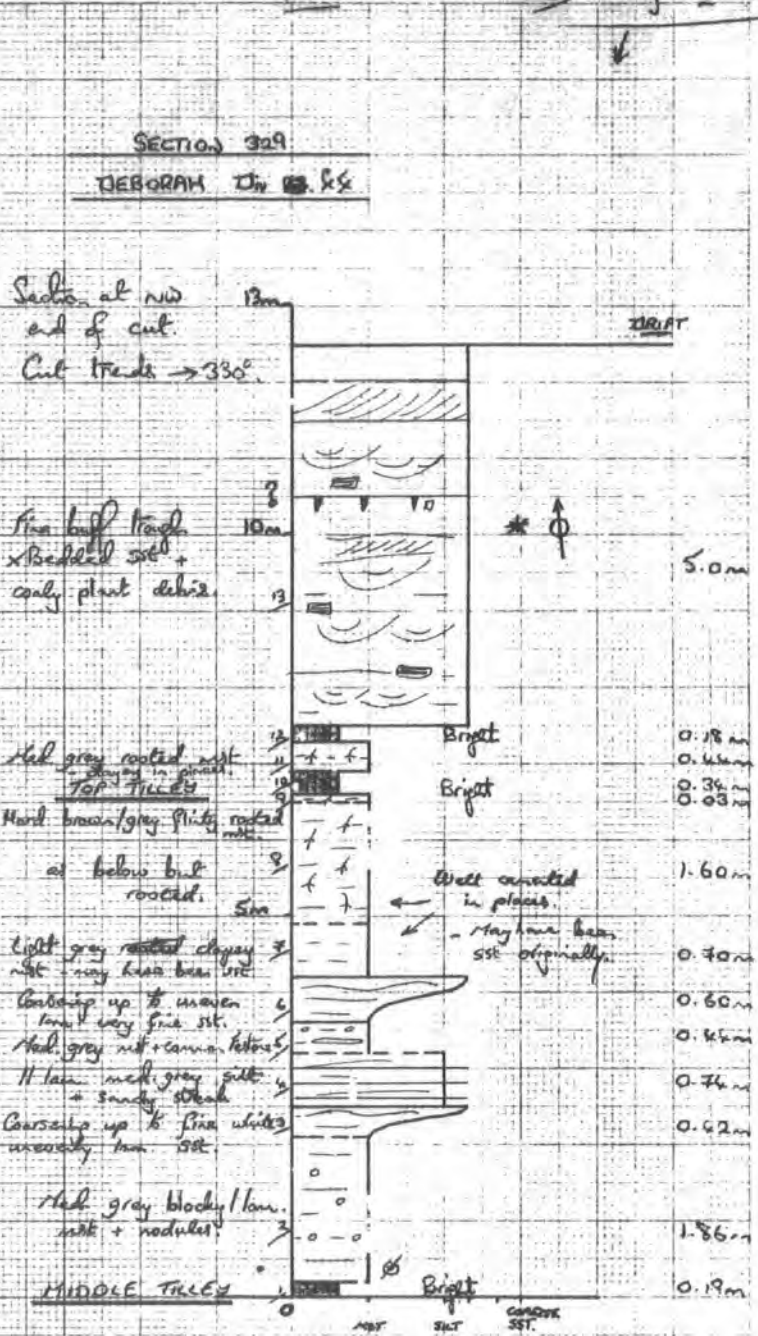 SECTION 329
DEBORAH Div
Section at NW
end of cut.
Cut trends → 330°.
13m
DRIFT
?
Fine buff trough
xBedded sst +
coaly plant debris.
10m
*
5.0m
13
12
Bright
0.18m
Med grey rooted mst
- clayey in places.
11
0.44m
TOP TILLEY
10
Bright
0.34m
9
0.03m
Hard brown/grey flinty rooted
mst.
as below but
rooted.
8
1.60m
5m
Well cemented
in places.
- May have been
sst originally.
Light grey rooted clayey
mst - may have been sst
7
0.70m
Coarsening up to uneven
lam. very fine sst.
6
0.60m
Med. grey mst +
5
0.44m
// lam. med. grey silt
+ sandy streak
4
0.74m
Coarsening up to fine white
unevenly lam sst.
3
0.42m
Med grey blocky/lam.
mst + nodules.
2
1.86m
MIDDLE TILLEY
1
Bright
0.19m
0
MST
SILT
SST.